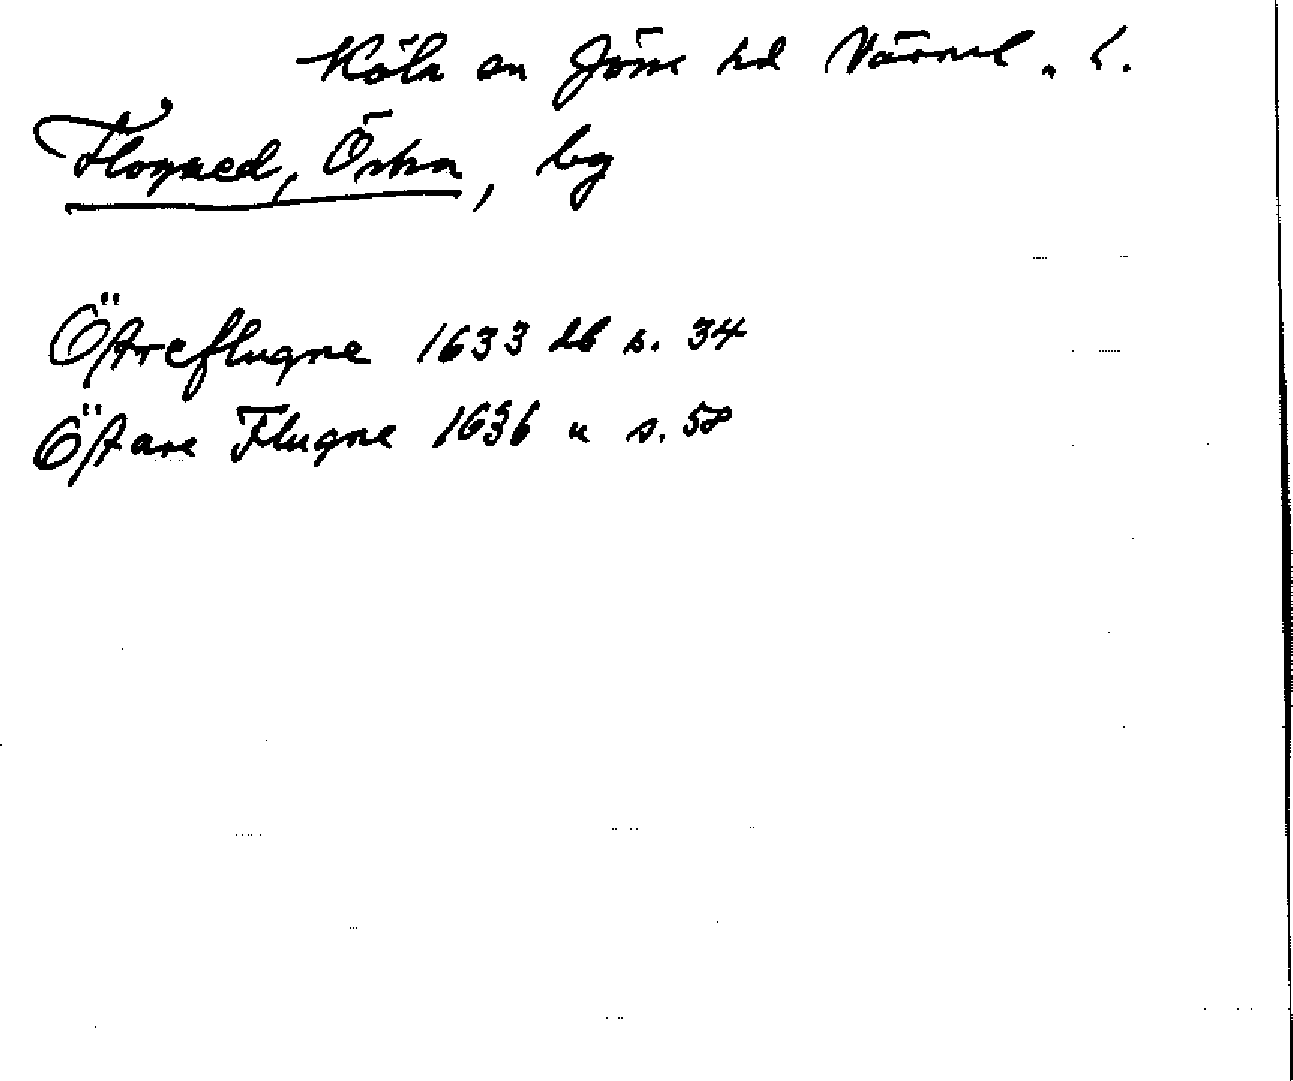 Köla sn Jösse hd Värml. l.
Flogned, Östra, by
Östreflugne 1633 db s. 34
Östare Flugne 1636 " s. 58